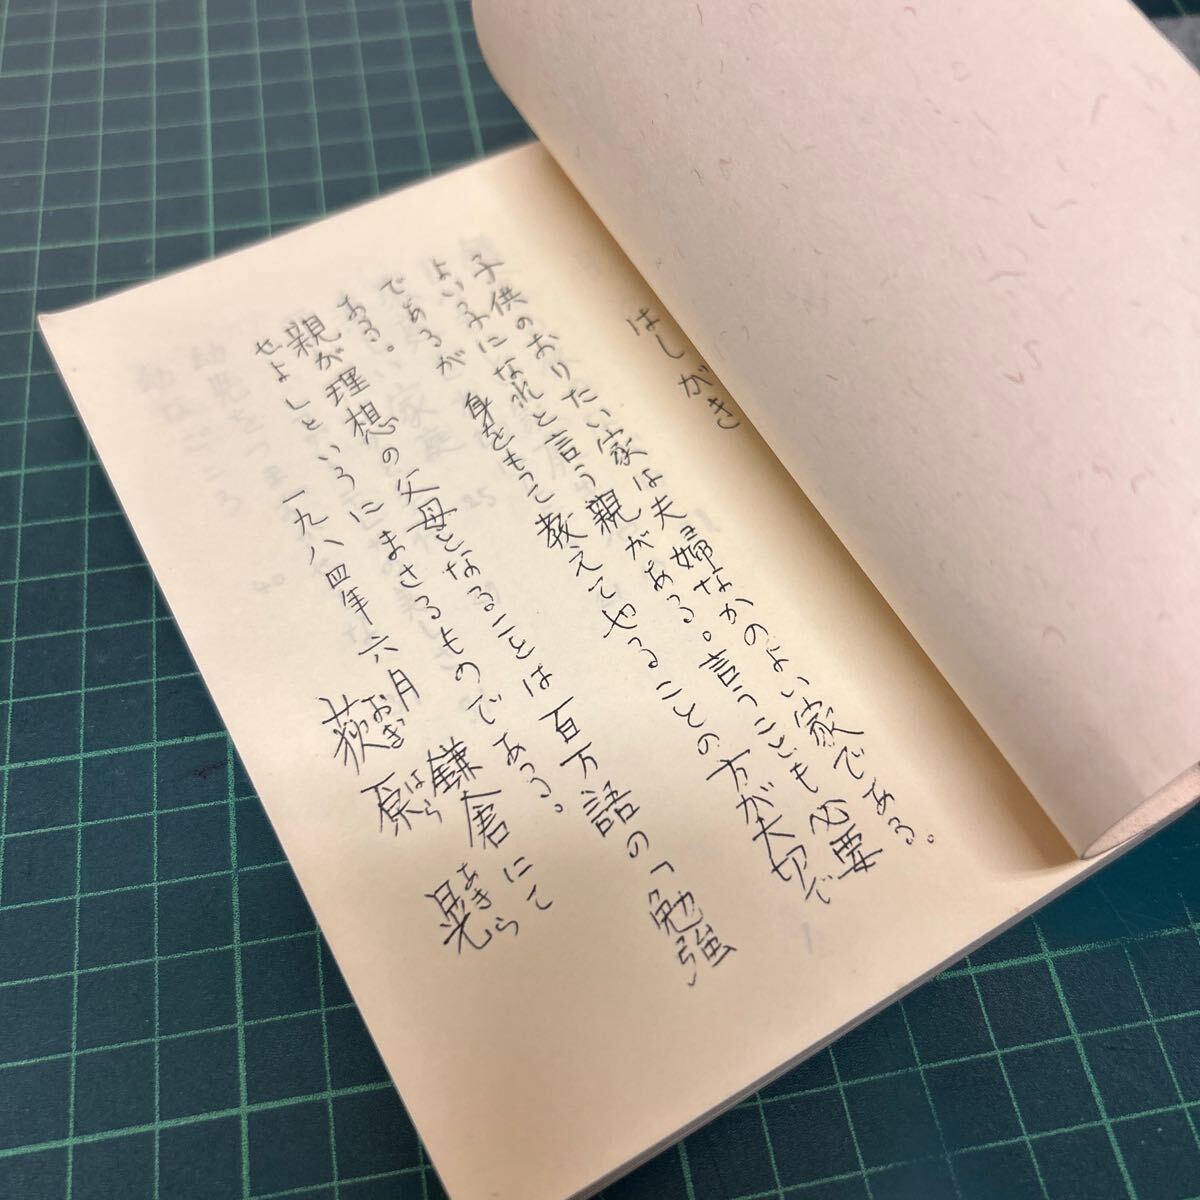 はしがき
子供のおりたい家は夫婦なかのよい家である。
よい子になれと言う親がある。言うことも必要
であるが 身をもって教えてやることの方が大切で
ある。
親が理想の父母となることは百万語の「勉強
せよ」というにまさるものである。
一九八四年六月 鎌倉にて
荻原 晃
おぎ はら あきら